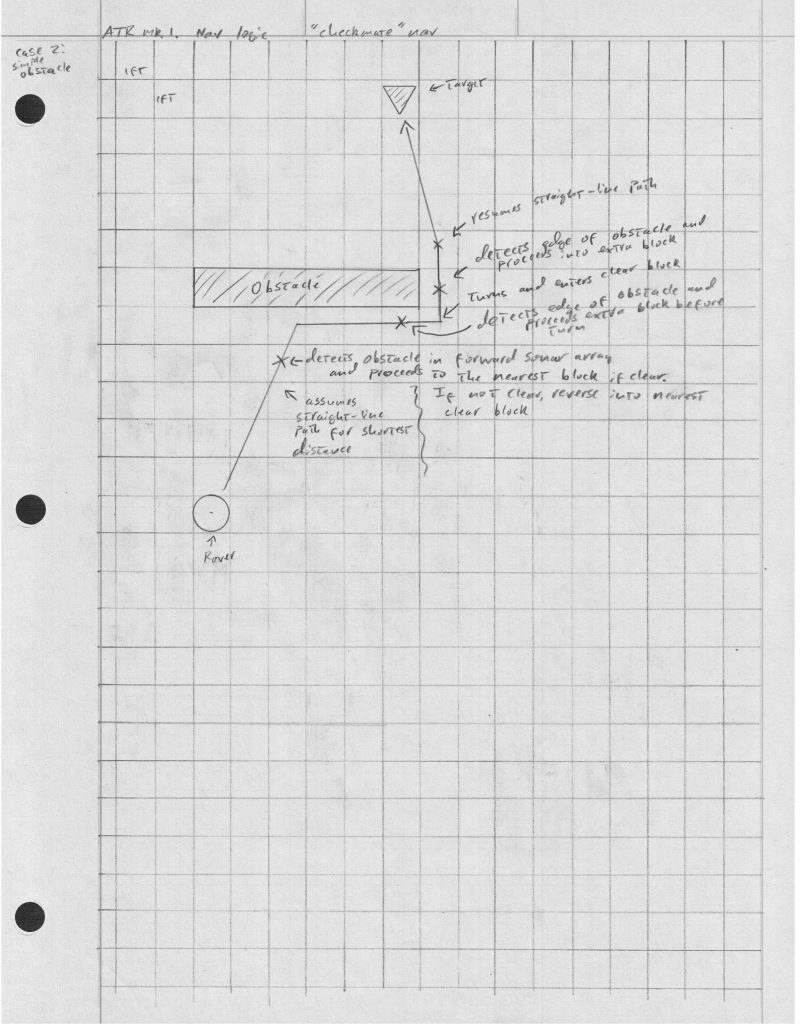 ATR mk. 1. Nav logic "checkmate" nav
case 2:
simple
obstacle
1FT
1FT
Target
resumes straight-line path
detects edge of obstacle and
proceeds into extra block
Turns and enters clear block
Obstacle
detects edge of obstacle and
proceeds extra block before
turn
detects obstacle in forward sonar array
and proceeds to the nearest block if clear.
If not clear, reverse into nearest
clear block
assumes
straight-line
path for shortest
distance
Rover